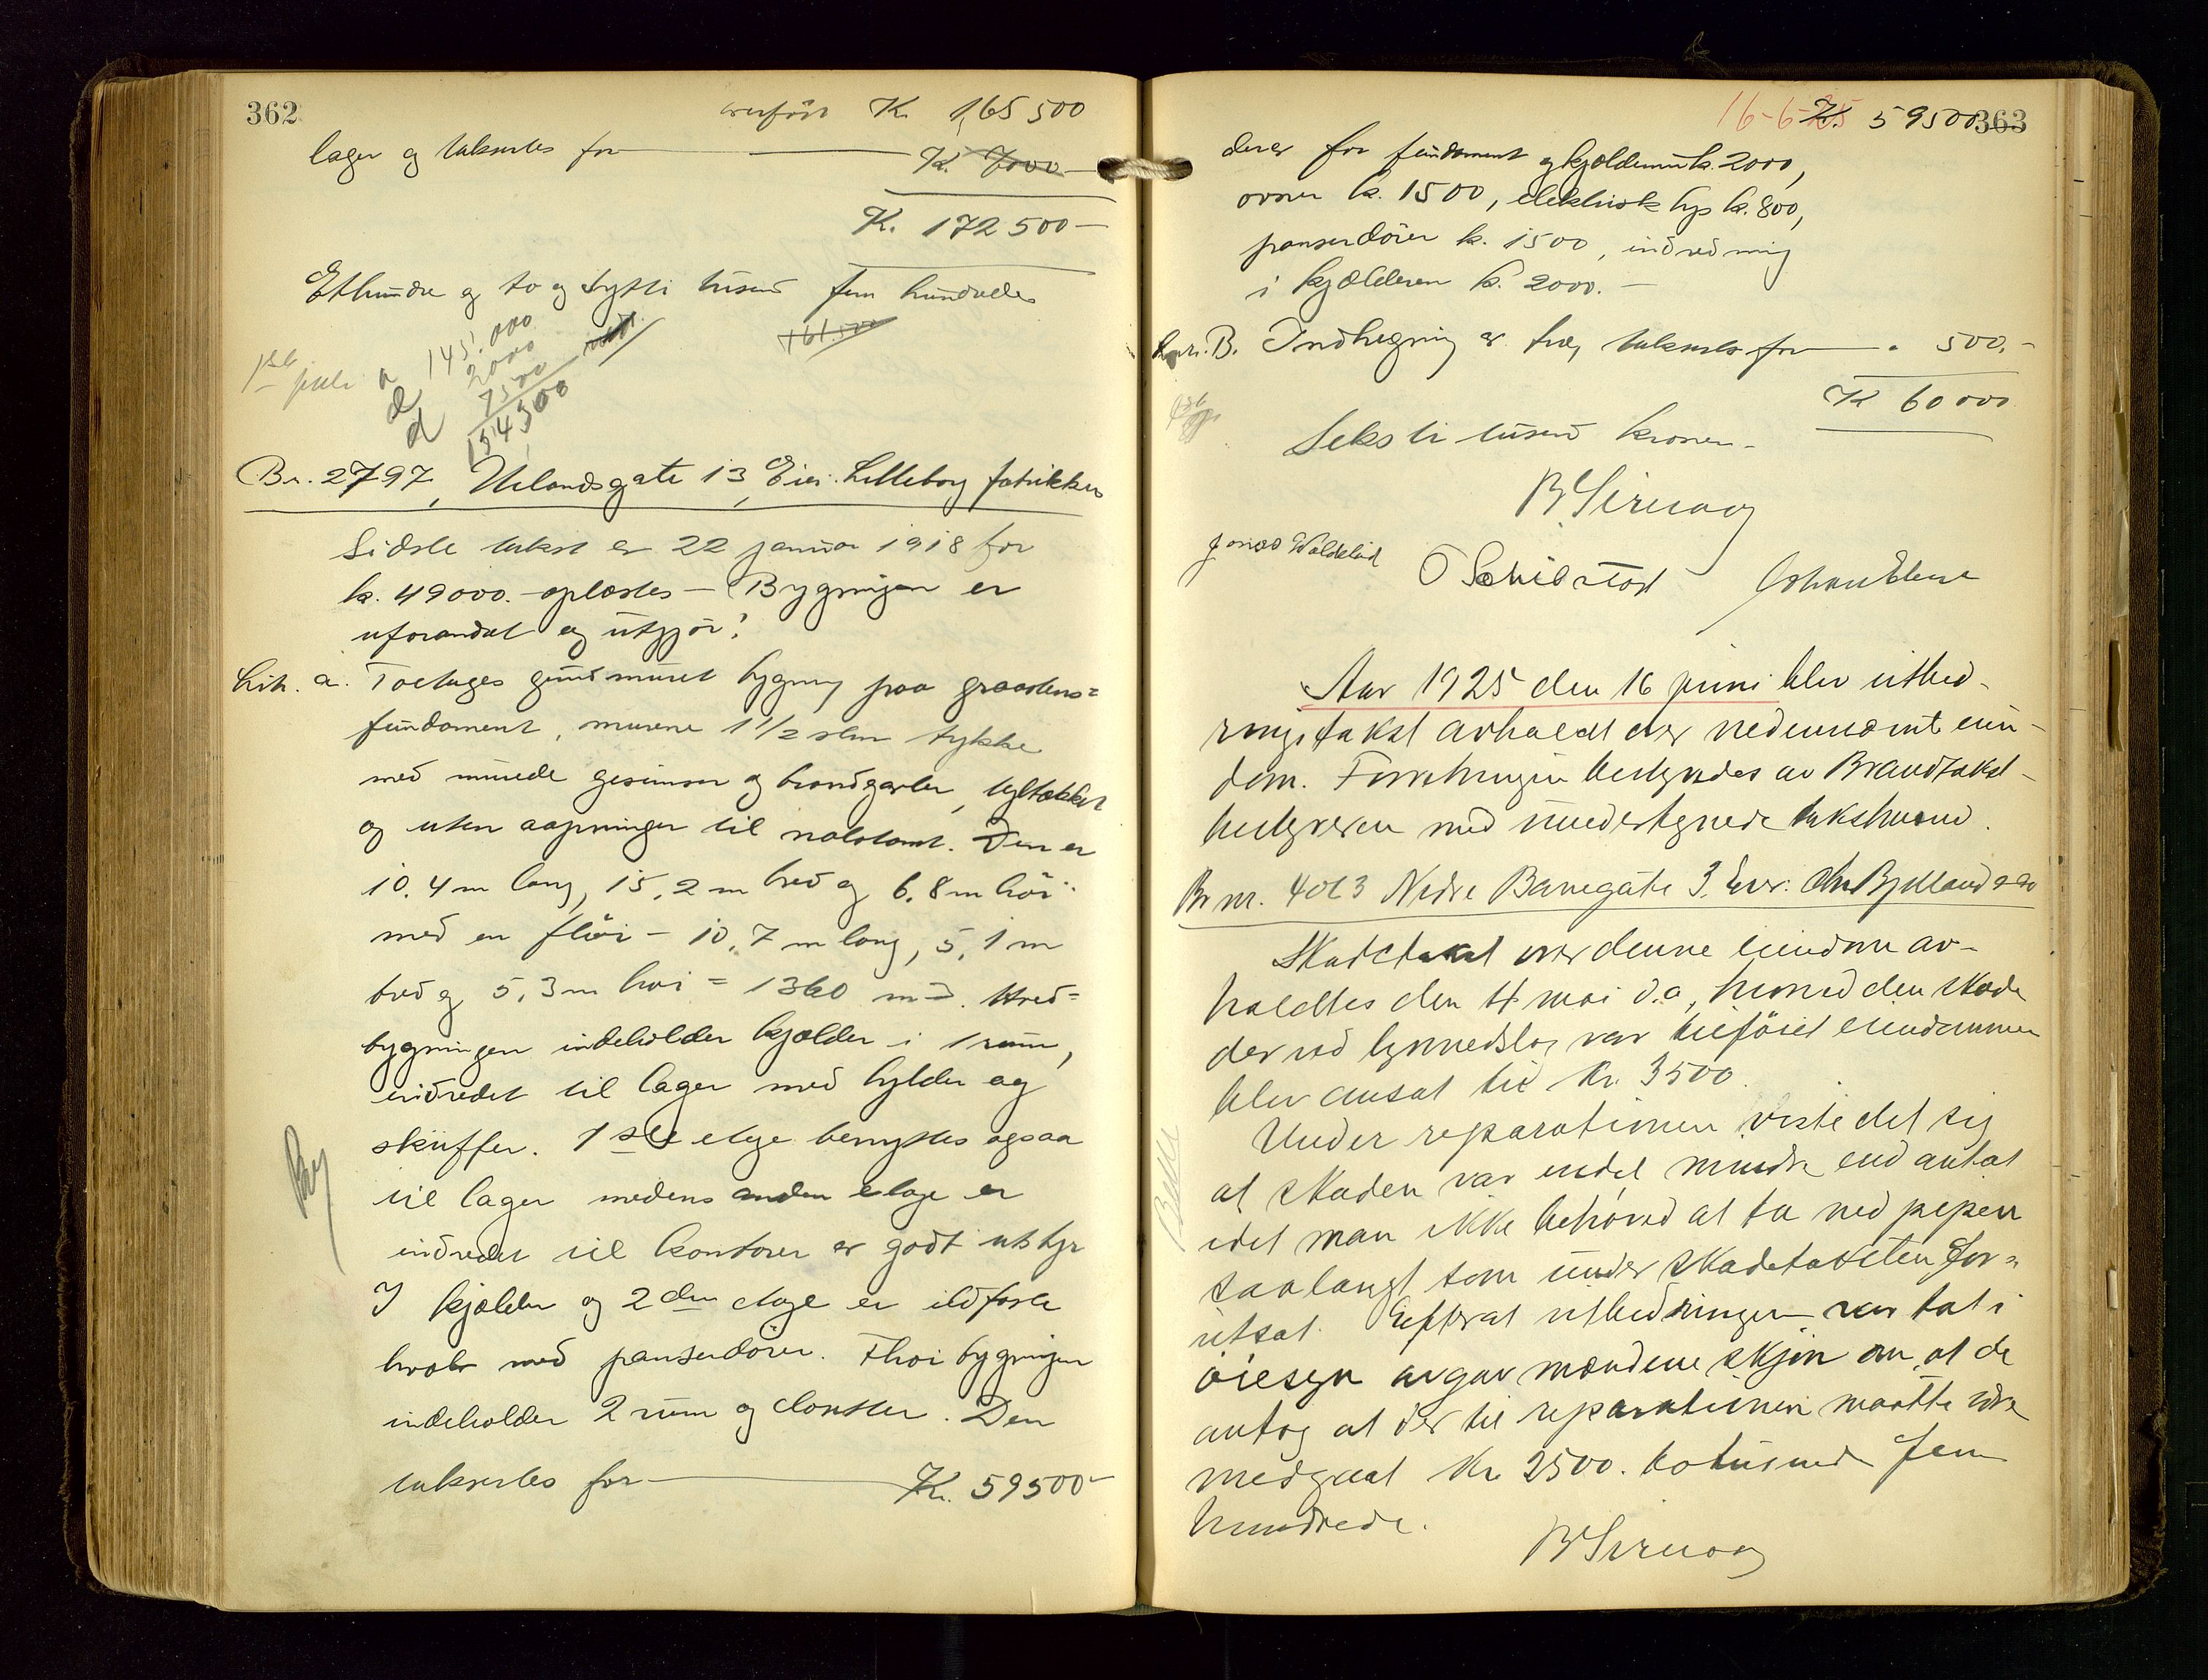 362
overført K. 165 500
lager og takseres for K. 7000 -
K. 172 500 -
Ethundre og to og sytti tusend fem hundrede
161.500
145.000
2000
7500
154500
Br. 2797, Uelandsgate 13, Eier: Lilleborg fabrikker
Sidste takst er 22 januar 1918 for
k. 49000.- oplæstes - Bygningen er
uforandret og utgjør:
Lit. a. Toetages grundmuret bygning paa graastens=
fundament, murene 1 1/2 sten tykke
med murede gesimser og brandgavler, tegltækket
og uten aapninger til nabotomt. Den er
10.4 m lang, 15,2 m bred og 6.8 m høi
med en fløi - 10,7 m lang, 5,1 m
bred og 5,3 m høi = 1360 m3. Hoved=
bygningen indeholder kjælder i 1 rum,
indredet til lager med hylder og
skuffer. 1ste etage benyttes ogsaa
til lager medens anden etage er
indredet til kontorer av godt utstyr
I kjælder og 2den etage er ildfaste
hvælv med panserdører. Fløibygningen
indeholder 2 rum og closetter. Den
takseres for K. 59500 -
363
16-6-25
K. 59500
derav for fundament og kjældermur k. 2000,
ovner k. 1500, elektrisk lys k. 800,
panserdører k. 1500, indredning
i kjælderen k. 2000. -
Lit. B. Indhegning av træ, takseres for " 500. -
K 60000
Seksti tusend kroner -
B Sirevaag
Jonas
O Schibstad
Johan
Aar 1925 den 16 juni blev utbed-
ringstakst avholdt over nedennævnte eien-
dom. Forretningen bestyredes av Brandtakst-
bestyreren med undertegnede takstmænd.
Br nr. 4013 Nedre Banegate 3. Eier: Chr Bjelland & Co
Skadetakst over denne eiendom av-
holdtes den 4 mai d.a, hvorved den skade
der ved lynnedslag var tilføiet eiendommen
blev ansat til Kr. 3500.
Under reparationen viste det sig
at skaden var endel mindre end antat
idet man ikke behøved at ta ned pipen
saalangt som under skadetaksten for=
utsat. Efterat utbedringen var tat i
øiesyn avgav mændene skjøn om at de
antog at der til reparationen maatte være
medgaat Kr 2500. totusend fem
hundrede.
B Sirevaag